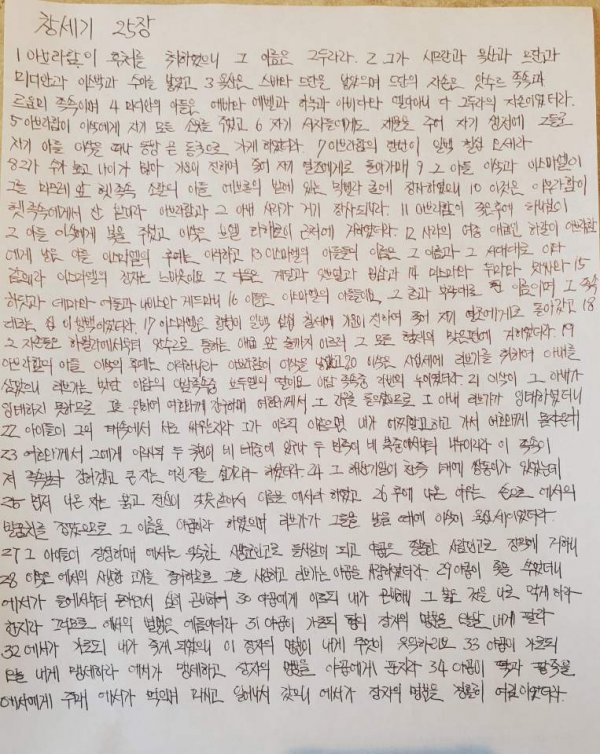 창세기 25장
1 아브라함이 후처를 취하였으니 그 이름은 그두라라. 2 그가 시므란과 욕산과 므단과
미디안과 이스박과 수아를 낳았고 3 욕산은 스바와 드단을 낳았으며 드단의 자손은 앗수르 족속과
르움미 족속이며 4 미디안의 아들은 에바와 에벨과 하녹과 아비다와 엘다아니 다 그두라의 자손이었더라.
5 아브라함이 이삭에게 자기 모든 소유를 주었고 6 자기 서자들에게도 재물을 주어 자기 생전에 그들로
자기 아들 이삭을 떠나 동방 곧 동국으로 가게 하였더라 7 아브라함의 향년이 일백 칠십 오세라
8 그가 수가 높고 나이가 많아 기운이 진하여 죽어 자기 열조에게로 돌아가매 9 그 아들 이삭과 이스마엘이
그를 마므레 앞 헷 족속 소할의 아들 에브론의 밭에 있는 막벨라 굴에 장사하였으니 10 이것은 아브라함이
헷 족속에게서 산 밭이라 아브라함과 그 아내 사라가 거기 장사되니라. 11 아브라함이 죽은 후에 하나님이
그 아들 이삭에게 복을 주셨고 이삭은 브엘 라해로이 근처에 거하였더라. 12 사라의 여종 애굽인 하갈이 아브라함
에게 낳은 아들 이스마엘의 후예는 이러하고 13 이스마엘의 아들들의 이름은 그 이름과 그 세대대로 이와
같으니라 이스마엘의 장자는 느바욧이요 그 다음은 게달과 앗브엘과 밉삼과 14 미스마와 두마와 맛사와 15
하닷과 데마와 여둘과 나비스와 게드마니 16 이들은 이스마엘의 아들들이요 그 촌과 부락대로 된 이름이며 그 족속
대로는 십 이 방백이었더라. 17 이스마엘은 향년이 일백 삼십 칠세에 기운이 진하여 죽어 자기 열조에게로 돌아갔고 18
그 자손들은 하윌라에서부터 앗수르로 통하는 애굽 앞 술까지 이르러 그 모든 형제의 맞은편에 거하였더라. 19
아브라함의 아들 이삭의 후예는 이러하니라 아브라함이 이삭을 낳았고 20 이삭은 사십세에 리브가를 취하여 아내를
삼았으니 리브가는 밧단 아람의 아람족속중 브두엘의 딸이요 아람 족속중 라반의 누이였더라 21 이삭이 그 아내가
잉태하지 못하므로 그를 위하여 여호와께 간구하매 여호와께서 그 간구를 들으셨으므로 그 아내 리브가가 잉태하였더니
22 아이들이 그의 태속에서 서로 싸우는지라 그가 이르되 이같으면 내가 어찌할꼬하고 가서 여호와께 묻자온대
23 여호와께서 그에게 이르시되 두 국민이 네 태중에 있구나 두 민족이 네 복중에서부터 나누이리라 이 족속이
저 족속보다 강하겠고 큰 자는 어린 자를 섬기리라 하였더라. 24 그 해산기한이 찬즉 태에 쌍동이가 있었는데
25 먼저 나온 자는 붉고 전신이 갖옷같아서 이름을 에서라 하였고 26 후에 나온 아우는 손으로 에서의
발꿈치를 잡았으므로 그 이름을 야곱이라 하였으며 리브가가 그들을 낳을 때에 이삭이 육십세이었더라.
27 그 아이들이 장성하매 에서는 익숙한 사냥꾼인고로 들사람이 되고 야곱은 종용한 사람인고로 장막에 거하니
28 이삭은 에서의 사냥한 고기를 좋아하므로 그를 사랑하고 리브가는 야곱을 사랑하였더라. 29 야곱이 죽을 쑤었더니
에서가 들에서부터 돌아와서 심히 곤비하여 30 야곱에게 이르되 내가 곤비하니 그 붉은 것을 나로 먹게 하라
한지라 그러므로 에서의 별명은 에돔이더라 31 야곱이 가로되 형의 장자의 명분을 오늘날 내게 팔라
32 에서가 가로되 내가 죽게 되었으니 이 장자의 명분이 내게 무엇이 유익하리요 33 야곱이 가로되
오늘 내게 맹세하라 에서가 맹세하고 장자의 명분을 야곱에게 판지라 34 야곱이 떡과 팥죽을
에서에게 주매 에서가 먹으며 마시고 일어나서 갔으니 에서가 장자의 명분을 경홀히 여김이었더라.